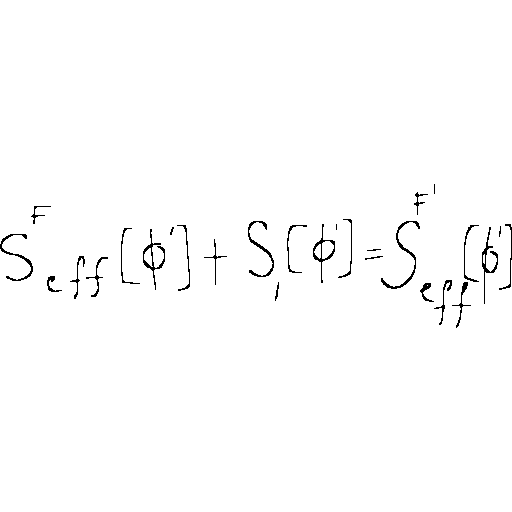 S^F_{eff}[ϕ'] + S_1[ϕ'] = S^{F'}_{eff}[ϕ']